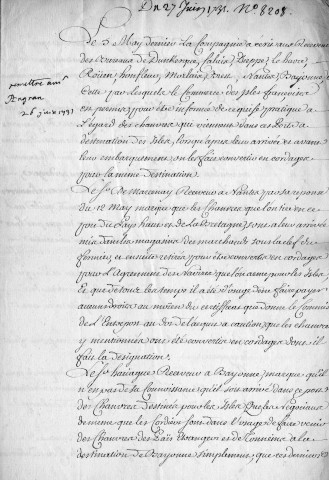 Du 27 Juin 1731. N° 8208.
Le 5 May dernier la Compagnie a écrit aux Receveurs
des Bureaux de Dunkerque, Calais, Dieppe, le havre,
Rouen, honfleur, St malo, Brest, Nantes, Bayonne,
Cette par lesquels le Commerce des Isles francoises
est permis, pour être informée de ce qui se pratique a
l'égard des chanvres qui viennent dans ces Ports a
destination des Isles, lorsqu'apres leur arrivée et avant
leur embarquement on les fait convertir en cordages
pour la même destination.
Le Sr de Receveur a Nantes par sa reponse
du 12 May marque que les Chanvres que l'on tire
du Pays haut et de la Bretagne, sont a leur arrivée
mis dans les magasins des marchands sous la clef du
fermier, et ensuite retirés pour être convertis en cordages
pour l'Agreement des Navires que l'on arme pour les Isles
Ce que de tous les temps il a été d'usage de ne faire payer
aucuns droits au moyen du certifficat que donne le Commis
de l'Entrepost au dos de l'acquit a caution, que les chanvres
y mentionnés ont été convertis en cordages dont il
fait la désignation.
Le Sr Receveur a Bayonne, marque qu'il
n'est pas de sa Connoissance qu'il soit arrivé dans ce port
des Chanvres destinés pour les Isles
demême que les Cordiers sont dans l'usage de faire venir
des Chanvres des Païs Etrangers et de a la
destination de Bayonne simplement, que ces derniers
remettre a Mr
26 juin 1731